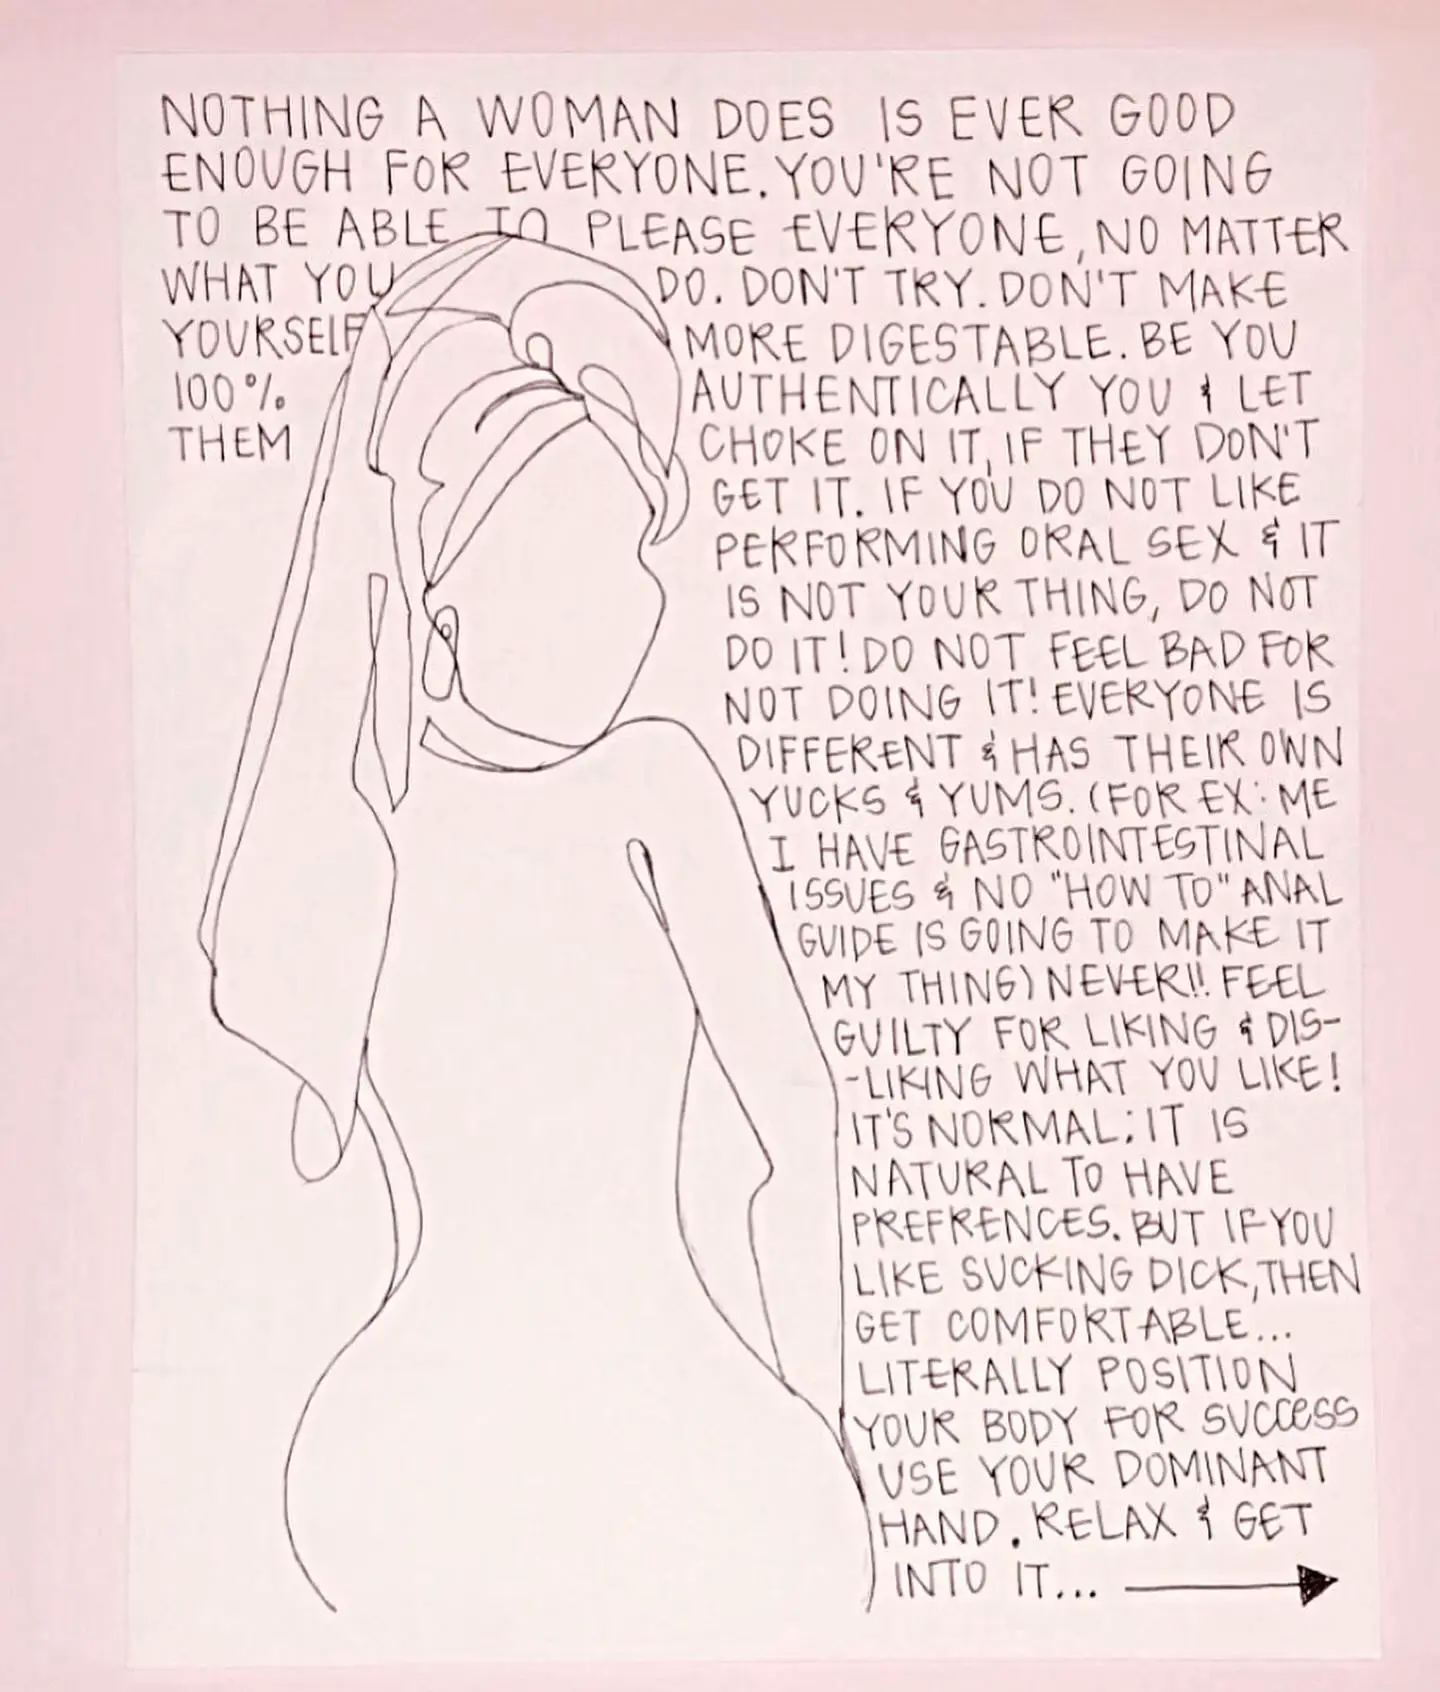 NOTHING A WOMAN DOES IS EVER GOOD
ENOUGH FOR EVERYONE. YOU'RE NOT GOING
TO BE ABLE TO PLEASE EVERYONE, NO MATTER
WHAT YOU DO. DON'T TRY. DON'T MAKE
YOURSELF MORE DIGESTABLE. BE YOU
100% AUTHENTICALLY YOU & LET
THEM CHOKE ON IT, IF THEY DON'T
GET IT. IF YOU DO NOT LIKE
PERFORMING ORAL SEX & IT
IS NOT YOUR THING, DO NOT
DO IT! DO NOT FEEL BAD FOR
NOT DOING IT! EVERYONE IS
DIFFERENT & HAS THEIR OWN
YUCKS & YUMS. (FOR EX: ME
I HAVE GASTROINTESTINAL
ISSUES & NO "HOW TO" ANAL
GUIDE IS GOING TO MAKE IT
MY THING) NEVER!! FEEL
GUILTY FOR LIKING & DIS-
-LIKING WHAT YOU LIKE!
IT'S NORMAL; IT IS
NATURAL TO HAVE
PREFRENCES. BUT IF YOU
LIKE SUCKING DICK, THEN
GET COMFORTABLE...
LITERALLY POSITION
YOUR BODY FOR SUCCESS
USE YOUR DOMINANT
HAND. RELAX & GET
INTO IT...